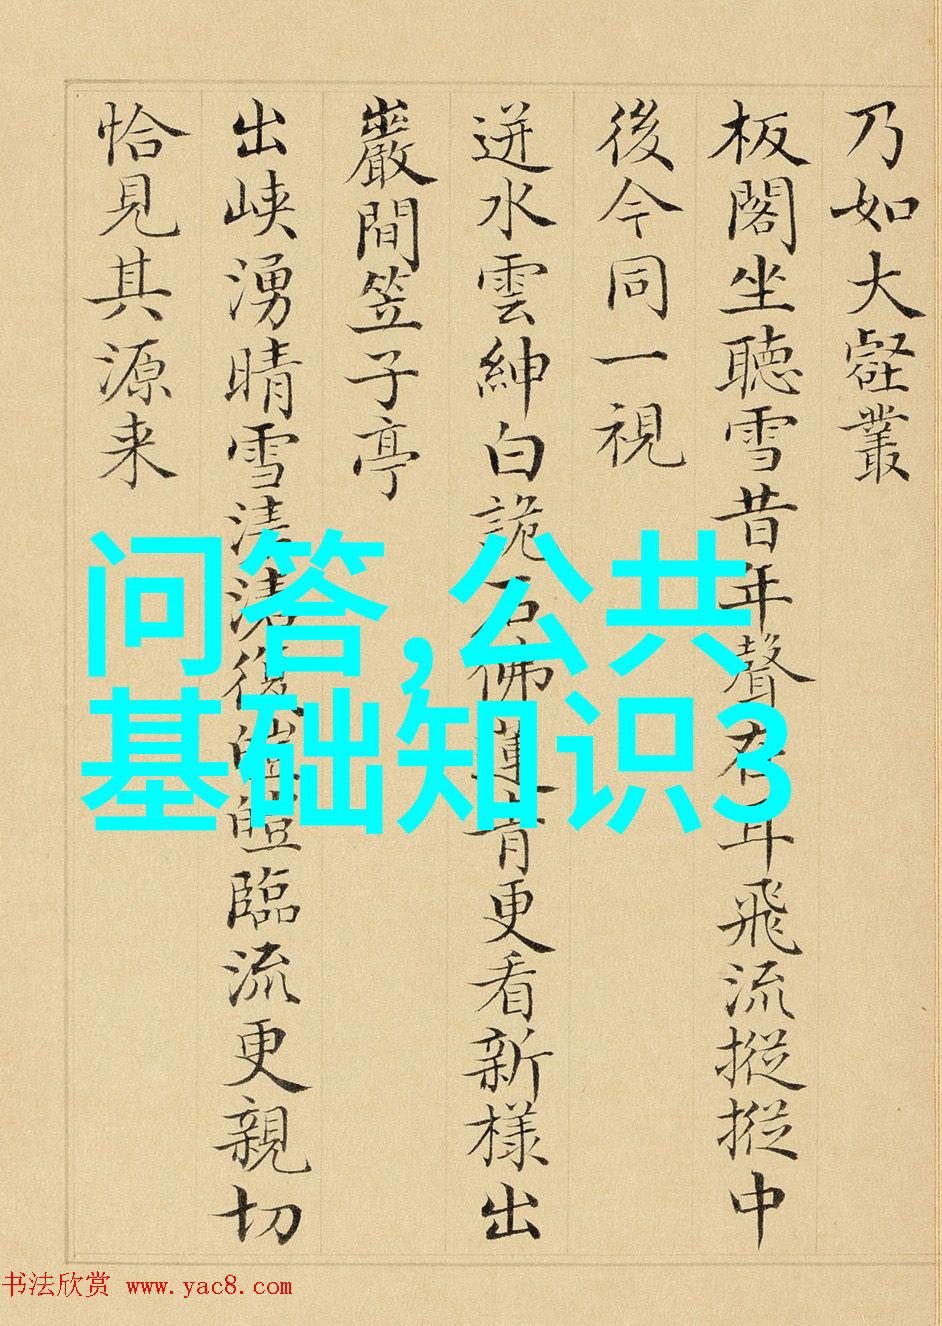 乃如大壑叢
板閣坐聽雪昔年聲在耳飛流摐摐中
後今同一視
迸水雲紳白詭石佛蓮青更看新樣出
巖間笠子亭
出峽湧晴雪清清復皚皚臨流更親切
恰見其源来
问答,公共
基础知识3
书法欣赏 www.yac8.com